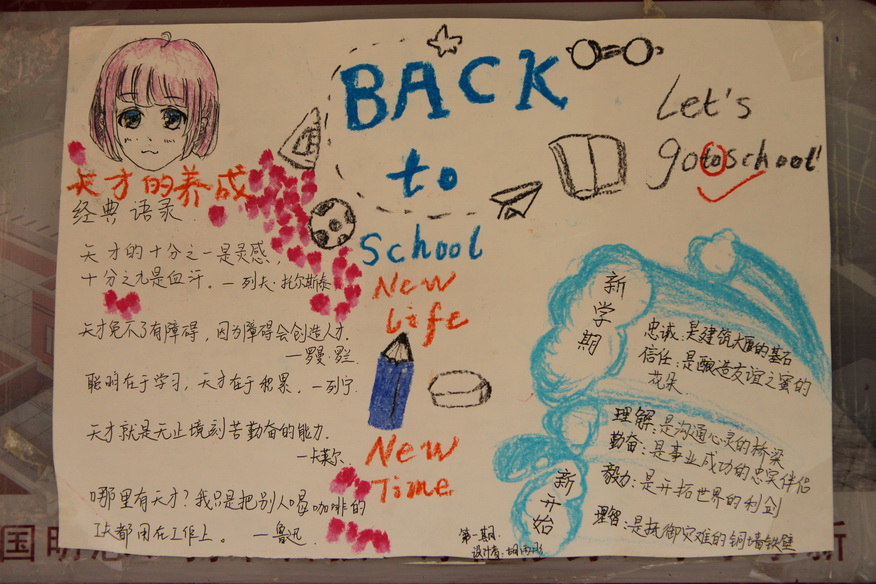 BACK
to
School
New
Life
New
Time
Let's
go to school!
天才的养成
经典语录
天才的十分之一是灵感,
十分之九是血汗。—列夫·托尔斯泰
天才免不了有障碍,因为障碍会创造人才.
—罗曼·罗兰
聪明在于学习,天才在于积累。—列宁
天才就是无止境刻苦勤奋的能力.
—卡莱尔
哪里有天才?我只是把别人喝咖啡的
工夫都用在工作上。—鲁迅
新学期
忠诚:是建筑大厦的基石
信任:是酿造友谊之蜜的
花朵
理解:是沟通心灵的桥梁
勤奋:是事业成功的忠实伴侣
毅力:是开拓世界的利剑
理智:是抵御灾难的铜墙铁壁
新开始
第一期
设计者:
国明
新